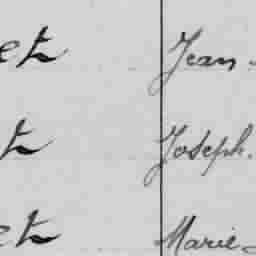 et Jean
t Joseph.
et Marie